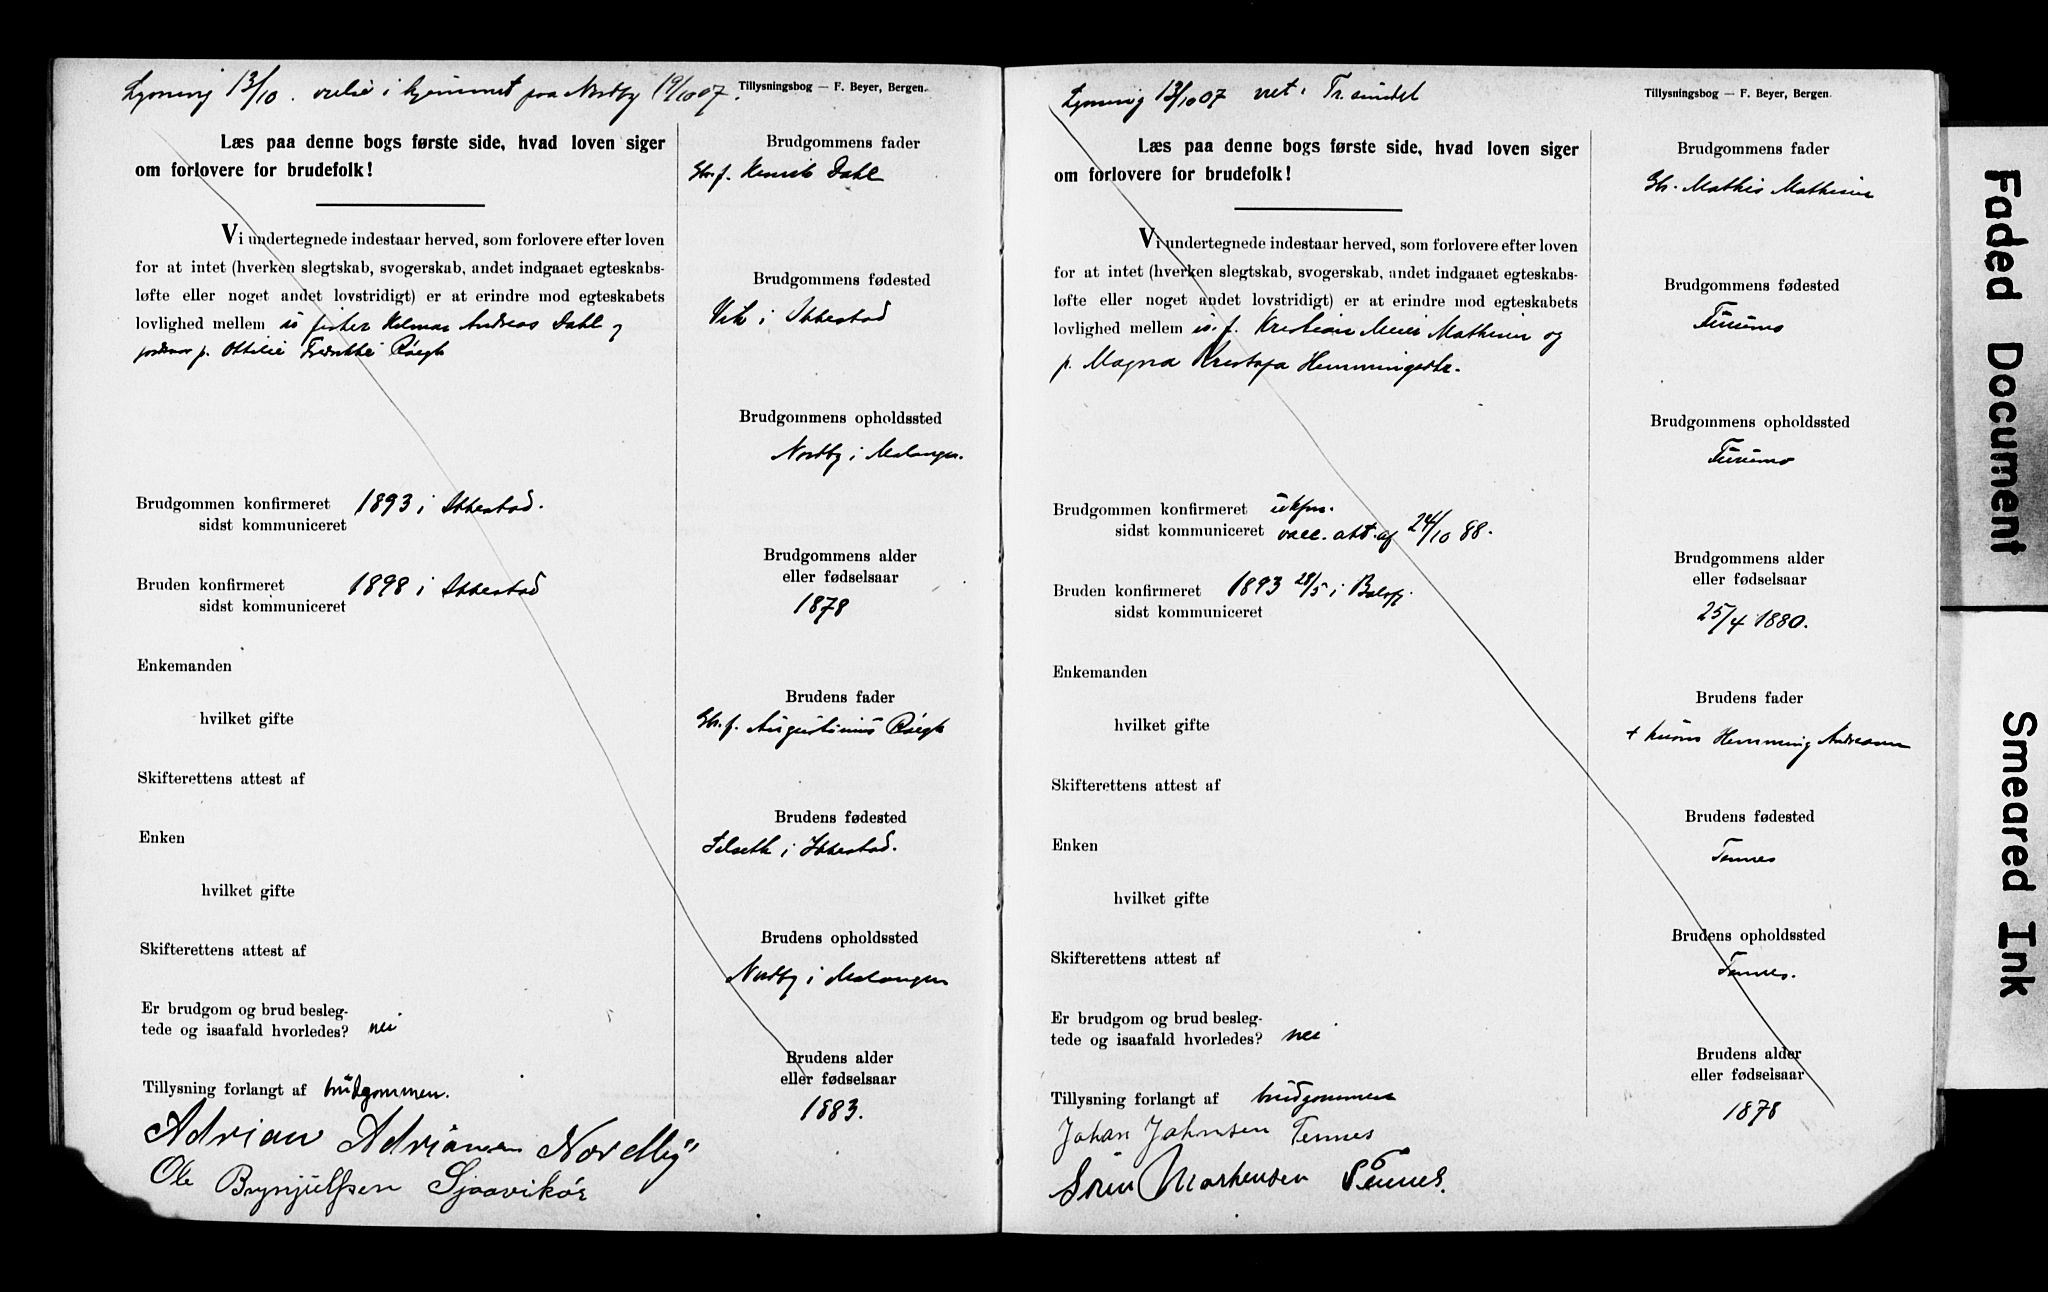 Lysning 13/10. vielse i hjemmet paa Nordby 19/10 07.
Tillysningsbog — F. Beyer, Bergen.
Læs paa denne bogs første side, hvad loven siger
om forlovere for brudefolk!
Vi undertegnede indestaar herved, som forlovere efter loven
for at intet (hverken slegtskab, svogerskab, andet indgaaet egteskabs-
løfte eller noget andet lovstridigt) er at erindre mod egteskabets
lovlighed mellem u. fisker Hilmar Andreas Dahl og
p. Ottilie Fredrikke
Brudgommen konfirmeret 1893 i Ibbestad.
sidst kommuniceret
Bruden konfirmeret 1898 i Ibbestad
sidst kommuniceret
Enkemanden
hvilket gifte
Skifterettens attest af
Enken
hvilket gifte
Skifterettens attest af
Er brudgom og brud besleg-
tede og isaafald hvorledes? nei
Tillysning forlangt af brudgommen.
Adrian Adriansen Nordby
Ole Brynjulfsen Sjaavikør
Brudgommens fader
Gbr. f. Henrik Dahl
Brudgommens fødested
Vik i Ibbestad
Brudgommens opholdssted
Nordby i Malangen.
Brudgommens alder
eller fødselsaar
1878
Brudens fader
Gbr. f. Augustinus
Brudens fødested
i Ibbestad.
Brudens opholdssted
Nordby i Malangen
Brudens alder
eller fødselsaar
1883.
Lysning 13/10 07 viet i Tr.sundet
Tillysningsbog — F. Beyer, Bergen.
Læs paa denne bogs første side, hvad loven siger
om forlovere for brudefolk!
Vi undertegnede indestaar herved, som forlovere efter loven
for at intet (hverken slegtskab, svogerskab, andet indgaaet egteskabs-
løfte eller noget andet lovstridigt) er at erindre mod egteskabets
lovlighed mellem u. f. Kristian Meier Mathisen og
p. Magna Kristofa Hemmingsdtr.
Brudgommen konfirmeret ukfm.
sidst kommuniceret vacc. att. af 24/10 88.
Bruden konfirmeret 1893 28/5 i Balsfj.
sidst kommuniceret
Enkemanden
hvilket gifte
Skifterettens attest af
Enken
hvilket gifte
Skifterettens attest af
Er brudgom og brud besleg-
tede og isaafald hvorledes? nei
Tillysning forlangt af brudgommen
Johan Johnsen Tennes
Sörin Morhensen Tennes.
Brudgommens fader
Gb. Mathis Mathisen
Brudgommens fødested
Furumo
Brudgommens opholdssted
Furumo
Brudgommens alder
eller fødselsaar
25/4 1880.
Brudens fader
† Hemming Andreasen
Brudens fødested
Tennes
Brudens opholdssted
Tennes.
Brudens alder
eller fødselsaar
1878
Faded Document
Smeared Ink